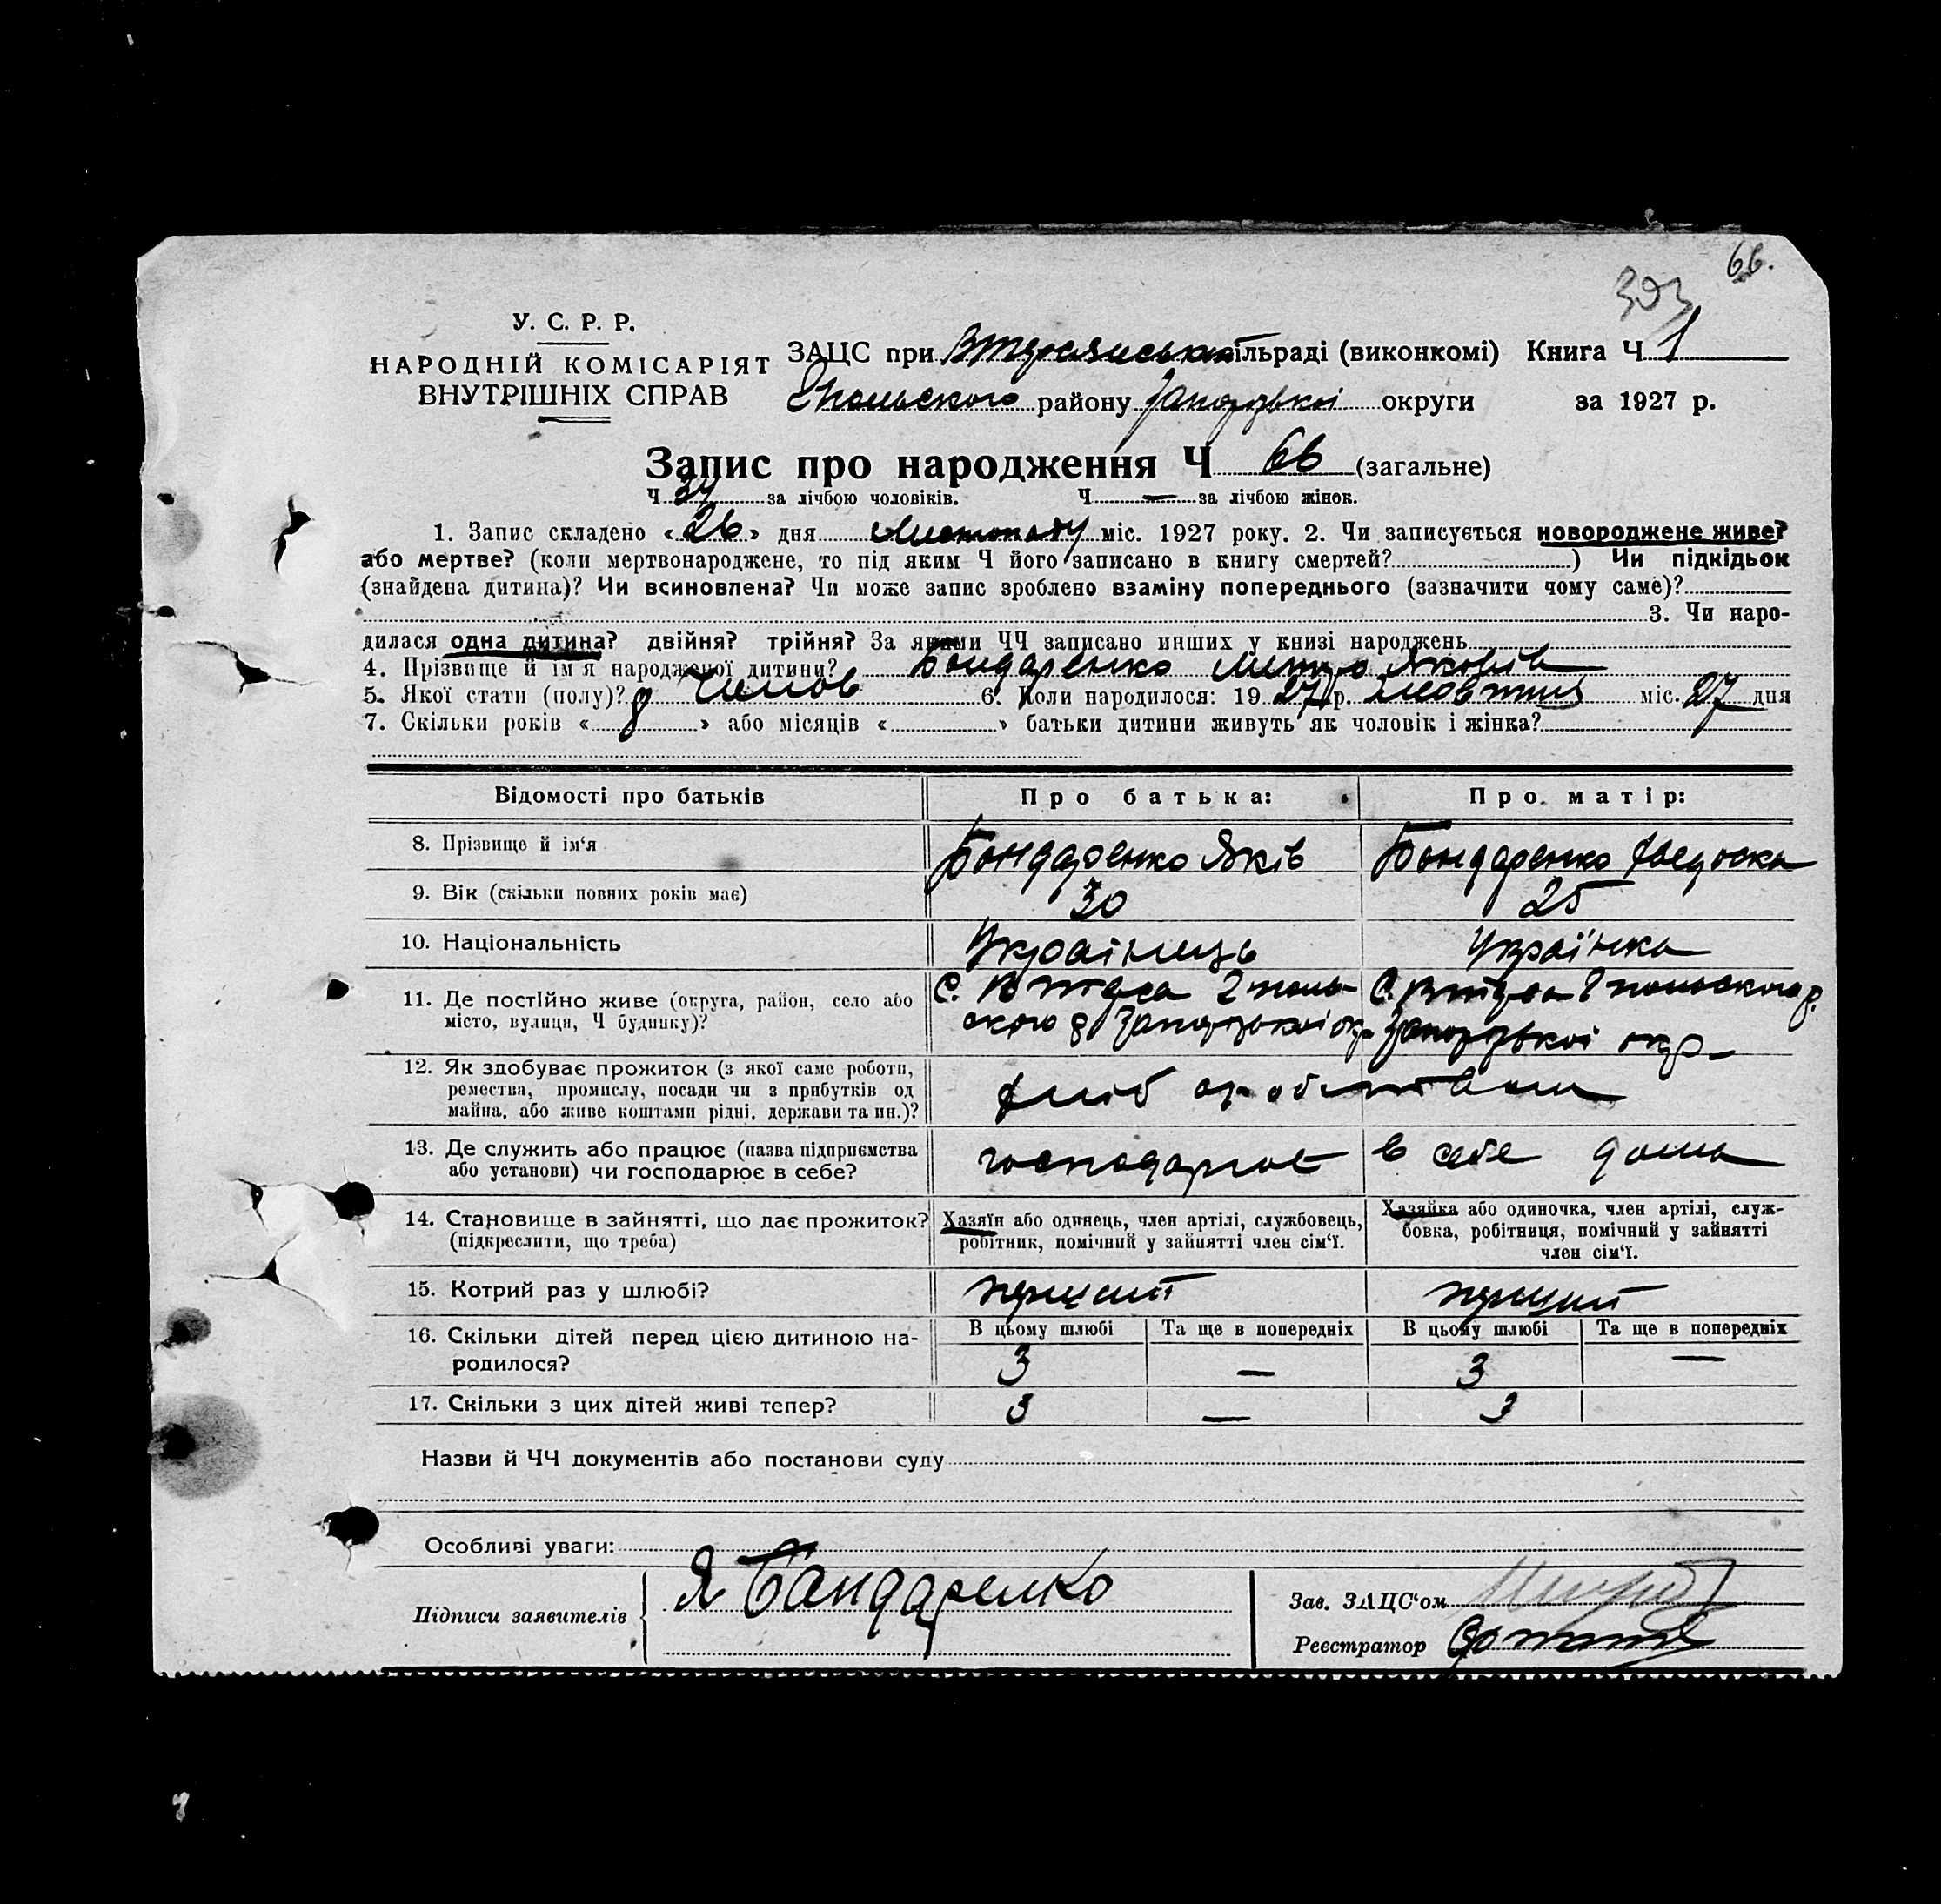 66.
У. С. Р. Р.
НАРОДНІЙ КОМІСАРІЯТ
ВНУТРІШНІХ СПРАВ
ЗАЦС при сільраді (виконкомі) Книга Ч 1
району округи за 1927 р.
Запис про народження Ч 66 (загальне)
Ч 34 за лічбою чоловіків. Ч — за лічбою жінок.
1. Запис складено «26» дня Листопаду міс. 1927 року. 2. Чи записується новороджене живе?
або мертве? (коли мертвонароджене, то під яким Ч його записано в книгу смертей?) Чи підкідьок
(знайдена дитина)? Чи всиновлена? Чи може запис зроблено взаміну попереднього (зазначити чому саме)?
3. Чи наро-
дилася одна дитина? двійня? трійня? За якими ЧЧ записано инших у книзі народжень
4. Прізвище й ім'я народженої дитини? Бондаренко Митро Яковів
5. Якої стати (полу)? 6. Коли народилося: 1927 р. Жовтня міс. 27 дня
7. Скільки років « 8 » або місяців « » батьки дитини живуть як чоловік і жінка?
Відомості про батьків Про батька: Про матір:
8. Прізвище й ім'я Бондаренко Яків Бондаренко
9. Вік (скільки повних років має) 30 25
10. Національність Українець Українка
11. Де постійно живе (округа, район, село або
місто, вулиця, Ч будинку)?
12. Як здобуває прожиток (з якої саме роботи,
ремества, промислу, посади чи з прибутків од
майна, або живе коштами рідні, держави та ин.)?
13. Де служить або працює (назва підприємства
або установи) чи господарює в себе? господарює в себе дома
14. Становище в зайнятті, що дає прожиток?
(підкреслити, що треба)
Хазяїн або одинець, член артілі, службовець,
робітник, помічний у зайнятті член сім'ї.
Хазяйка або одиночка, член артілі, служ-
бовка, робітниця, помічний у зайнятті
член сім'ї.
15. Котрий раз у шлюбі? перший перший
16. Скільки дітей перед цією дитиною на-
родилося?
В цьому шлюбі Та ще в попередніх В цьому шлюбі Та ще в попередніх
3 — 3 —
17. Скільки з цих дітей живі тепер? 3 — 3
Назви й ЧЧ документів або постанови суду
Особливі уваги:
Підписи заявителів Я Бандаренко
Зав. ЗАЦС'ом
Реєстратор